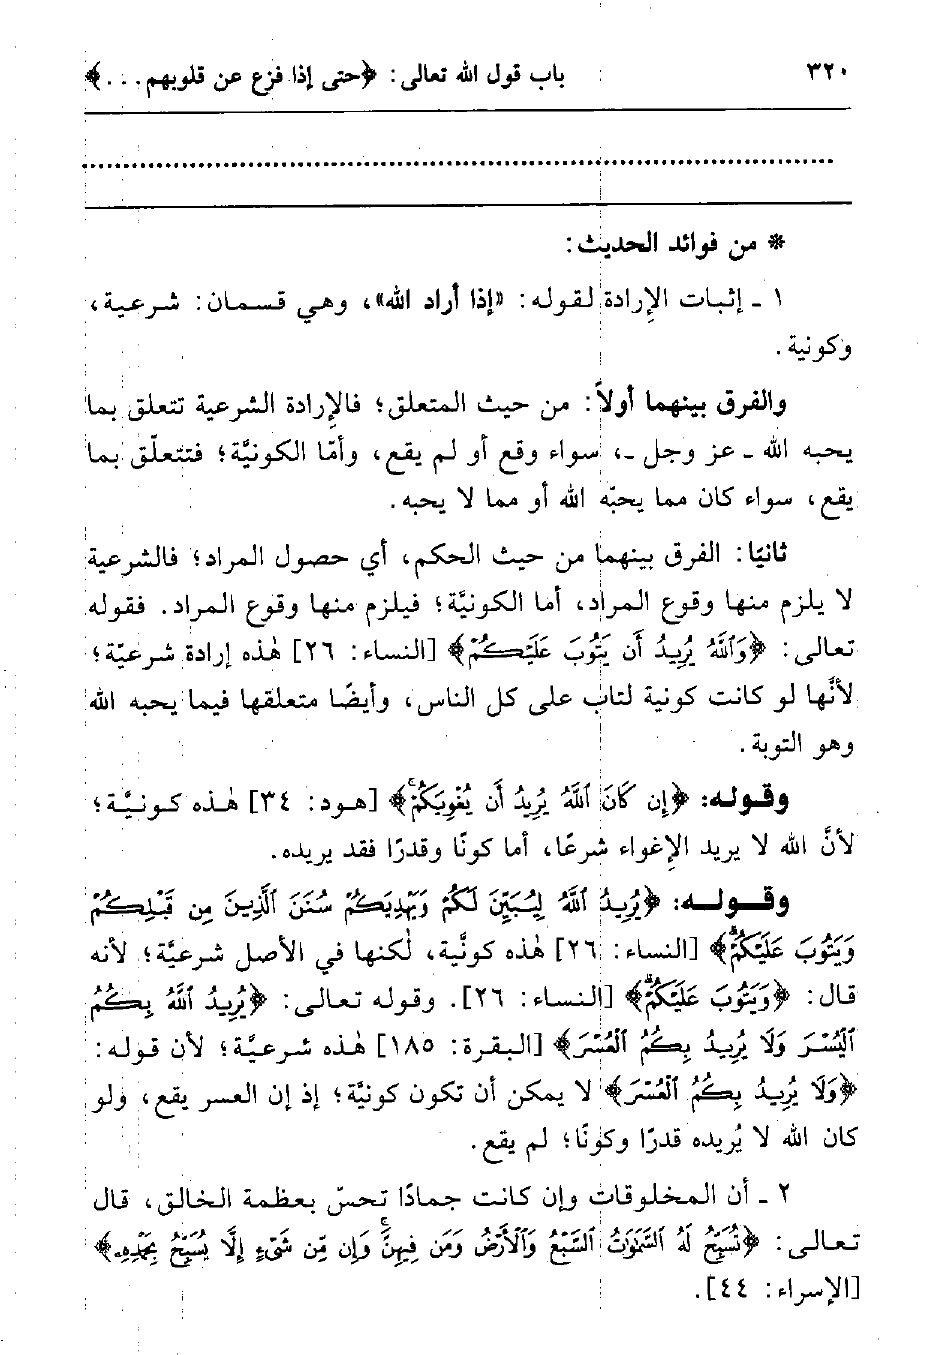 ٣٢٠ باب قول الله تعالى: ﴿حتى إذا فزع عن قلوبهم...﴾
* من فوائد الحديث:
١ - إثبات الإرادة لقوله: «إذا أراد الله»، وهي قسمان: شرعية،
وكونية.
والفرق بينهما أولاً: من حيث المتعلق؛ فالإرادة الشرعية تتعلق بما
يحبه الله - عز وجل -، سواء وقع أو لم يقع، وأمّا الكونيَّة؛ فتتعلّق بما
يقع، سواء كان مما يحبّه الله أو مما لا يحبه.
ثانيًا: الفرق بينهما من حيث الحكم، أي حصول المراد؛ فالشرعية
لا يلزم منها وقوع المراد، أما الكونيَّة؛ فيلزم منها وقوع المراد. فقوله
تعالى: ﴿وَٱللَّهُ يُرِيدُ أَن يَتُوبَ عَلَيْكُمْ﴾ [النساء: ٢٦] هٰذه إرادة شرعيّة؛
لأنَّها لو كانت كونية لتاب على كل الناس، وأيضًا متعلقها فيما يحبه الله
وهو التوبة.
وقوله: ﴿إِن كَانَ ٱللَّهُ يُرِيدُ أَن يُغْوِيَكُمْۚ﴾ [هود: ٣٤] هٰذه كونيَّة؛
لأنَّ الله لا يريد الإغواء شرعًا، أما كونًا وقدرًا فقد يريده.
وقوله: ﴿يُرِيدُ ٱللَّهُ لِيُبَيِّنَ لَكُمْ وَيَهْدِيَكُمْ سُنَنَ ٱلَّذِينَ مِن قَبْلِكُمْ
وَيَتُوبَ عَلَيْكُمْۗ﴾ [النساء: ٢٦] هٰذه كونيَّة، لٰكنها في الأصل شرعيَّة؛ لأنه
قال: ﴿وَيَتُوبَ عَلَيْكُمْۗ﴾ [النساء: ٢٦]. وقوله تعالى: ﴿يُرِيدُ ٱللَّهُ بِكُمُ
ٱلْيُسْرَ وَلَا يُرِيدُ بِكُمُ ٱلْعُسْرَ﴾ [البقرة: ١٨٥] هٰذه شرعيَّة؛ لأن قوله:
﴿وَلَا يُرِيدُ بِكُمُ ٱلْعُسْرَ﴾ لا يمكن أن تكون كونيَّة؛ إذ إن العسر يقع، ولو
كان الله لا يُريده قدرًا وكونًا؛ لم يقع.
٢ - أن المخلوقات وإن كانت جمادًا تحسّ بعظمة الخالق، قال
تعالى: ﴿تُسَبِّحُ لَهُ ٱلسَّمَٰوَٰتُ ٱلسَّبْعُ وَٱلْأَرْضُ وَمَن فِيهِنَّۚ وَإِن مِّن شَىْءٍ إِلَّا يُسَبِّحُ بِحَمْدِهِۦ﴾
[الإسراء: ٤٤].